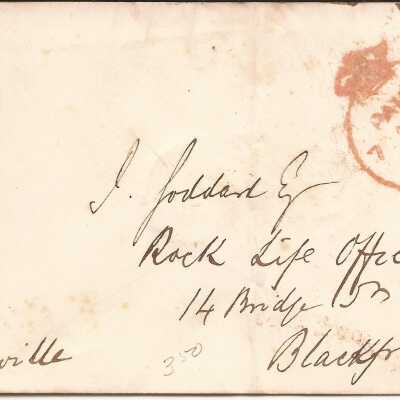 PAI
7
J. Goddard Esq
Rock Life Offic
14 Bridge St
Blackfr
ville
350